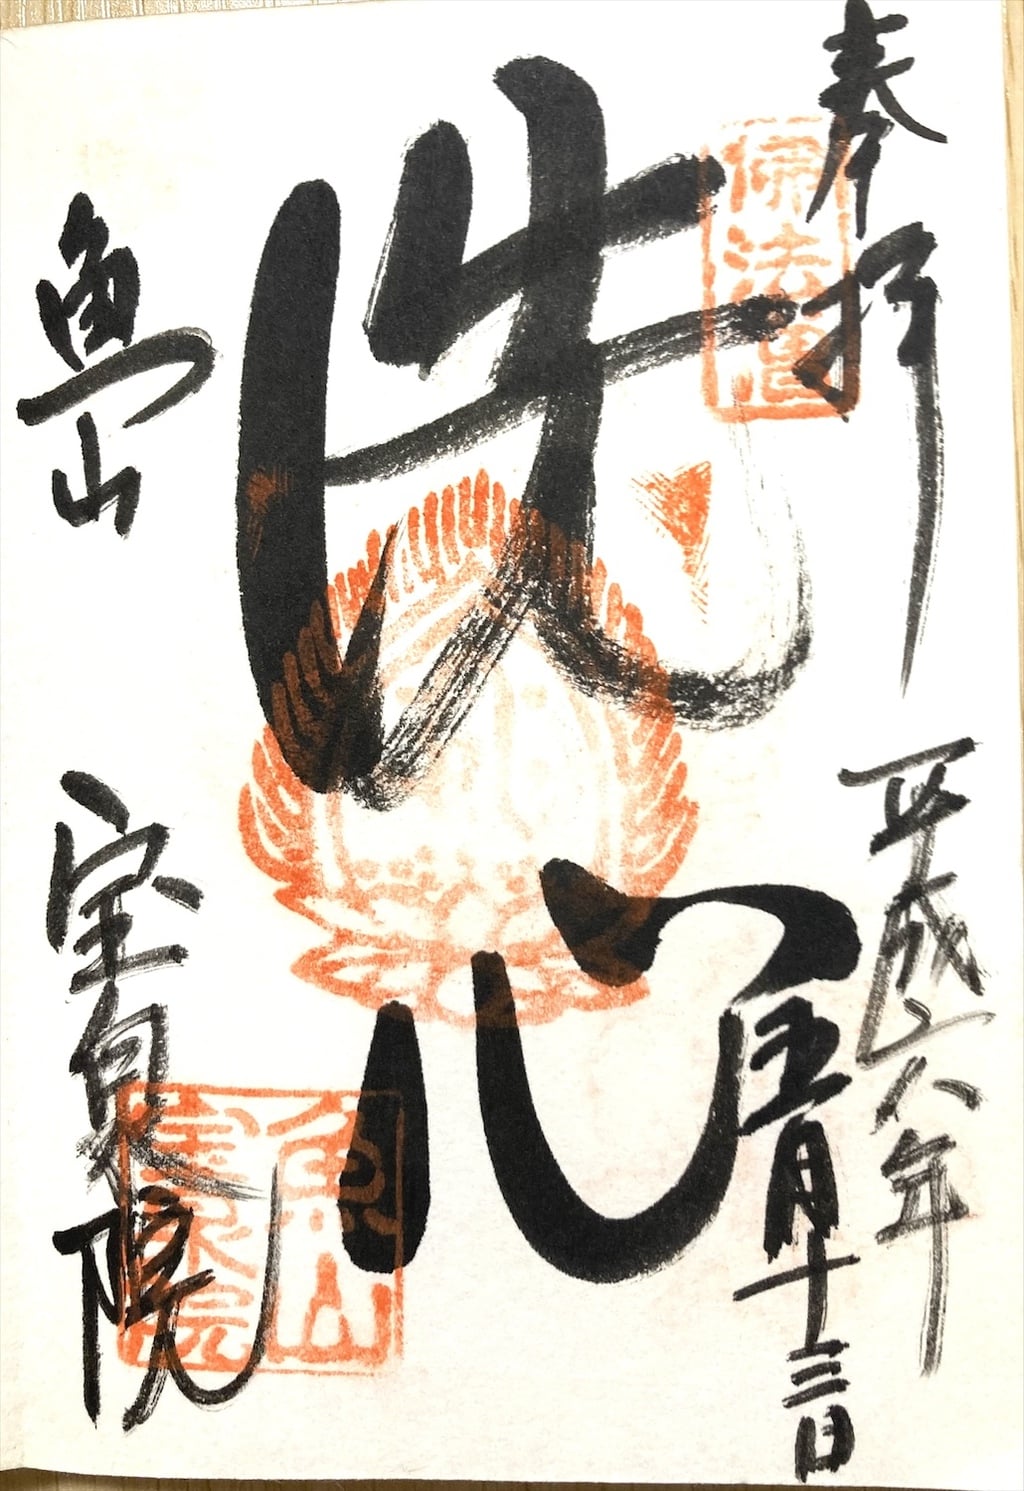 奉拝
佛法僧
平成二八年
五月十三日
洗心
魚山 宝泉院
魚山
寶泉院